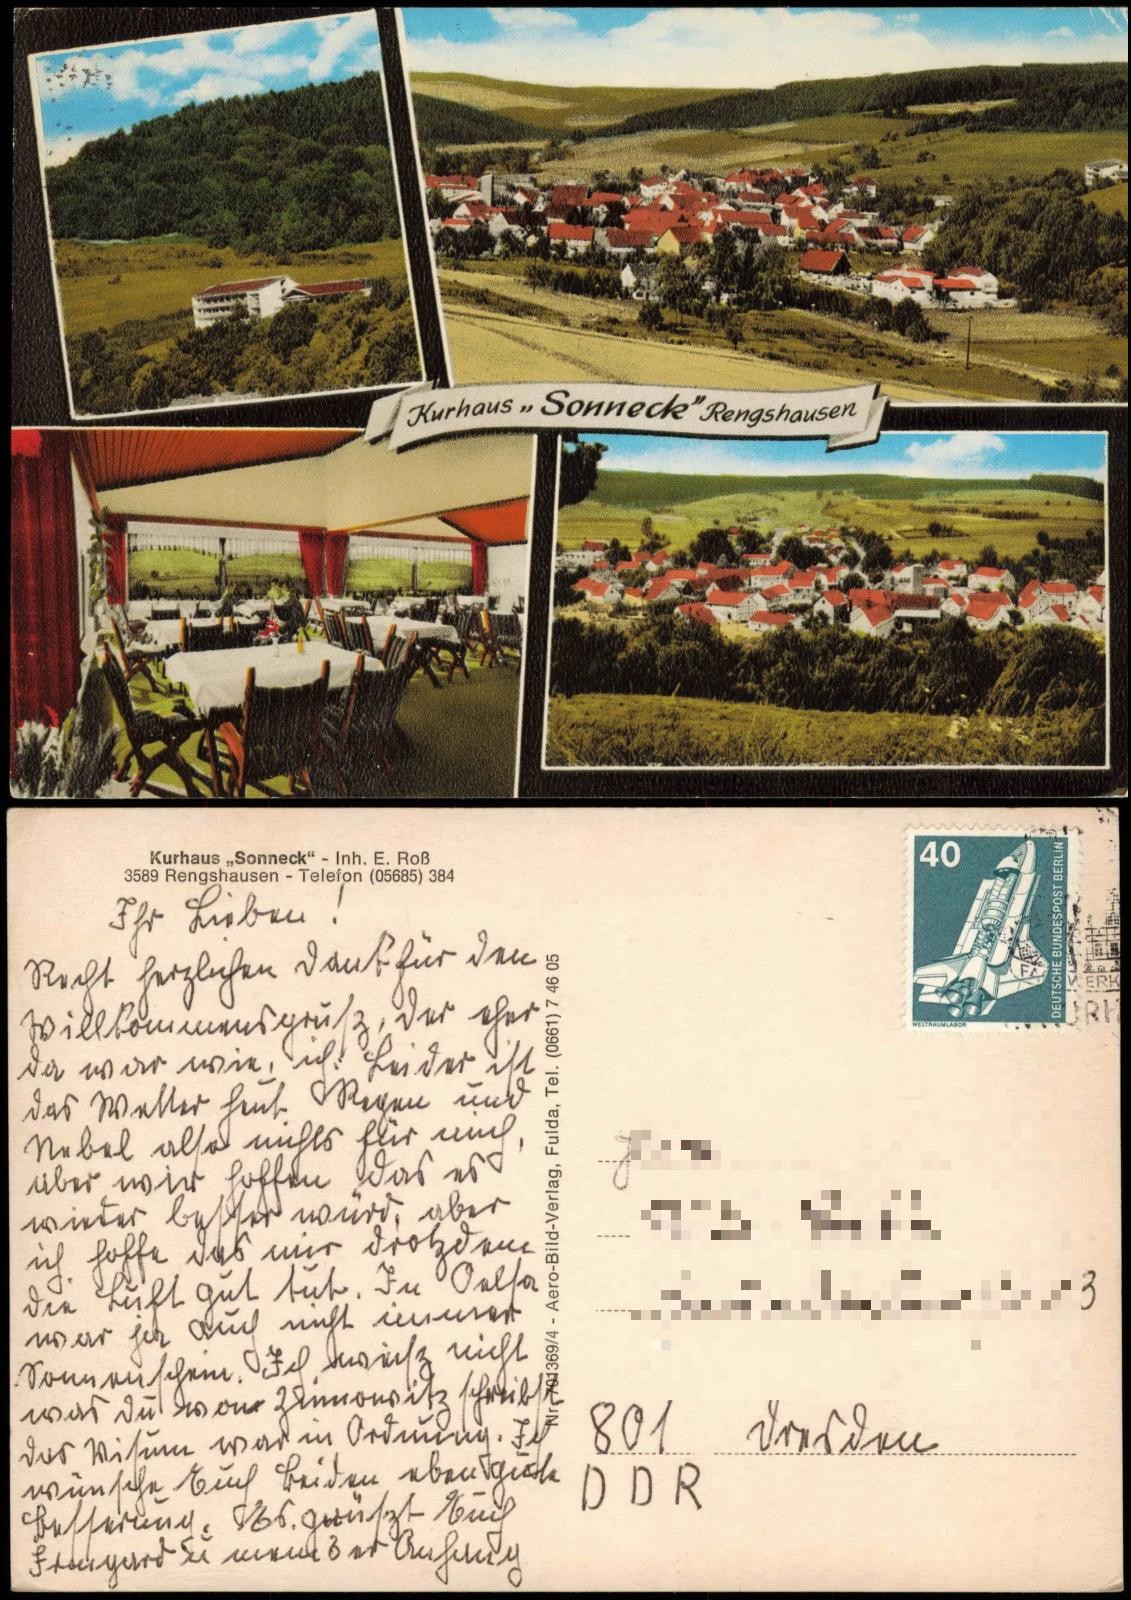 Kurhaus „Sonneck" Rengshausen
Kurhaus „Sonneck" - Inh. E. Roß
3589 Rengshausen - Telefon (05685) 384
Ihr Lieben!
Recht herzlichen Dank für den
Willkommensgrusz, der eher
da war wie, ich. Leider ist
das Wetter heut Regen und
Nebel also nichts für mich,
aber wir hoffen das es
wieder besser würd, aber
ich hoffe das mir drotzdem
die Luft gut tut. In Oelsa
war ja auch nicht immer
Sonnenschein. Ich weisz nicht
was du von Zinnowitz schreibst
das Visum war in Ordnung. Ich
wünsche Euch beiden eben gute
Besserung. Es grüszt Euch
Irmgard u mein 3 er Anhang
Nr. 701369/4 - Aero-Bild-Verlag, Fulda, Tel. (0661) 7 46 05
40
DEUTSCHE BUNDESPOST BERLIN
WELTRAUMLABOR
3
801 Dresden
DDR